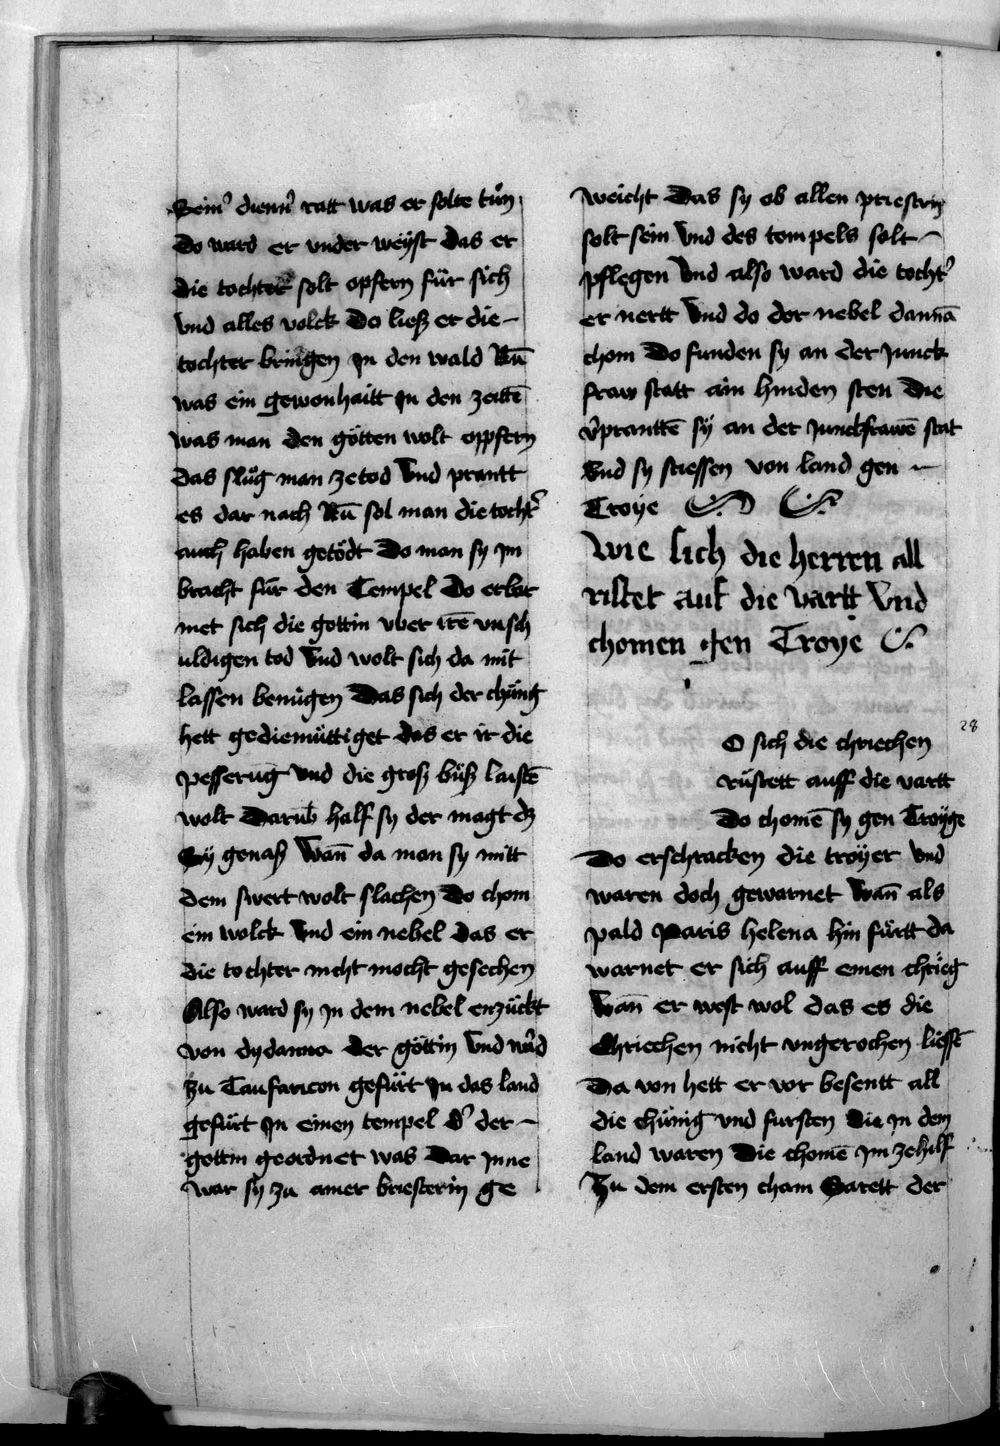 Seinͤ dienͤ ratt was er solte tuͦn
Do ward er vnder weÿst das er
die tochter solt opfern für sich
vnd alles volck Do ließ er die –
tochter bringen jn den wald Nū
was ein gewonhaitt jn den zeittē
was man den götten wolt oppfern
das sluͦg man zetod Vnd prantt
es dar nach Nū sol man die tocht͛
auch haben getödt Do man sy jm
bracht für den Tempel Do erbar
met sich die gottin vber irē vnsch
uldigen tod Vnd wolt sich da mit
lassen benügen Das sich der chünig
hett gediemüttiget das er ir die
pesserūg vnd die groß büß laistē
wolt Darūb half sy der magt dz
Sy genaß Wañ da man sy mitt
dem swert wolt slachen Do chom
ein wolck Vnd ein nebel das er
die tochter nicht mocht gesechen
Also ward sy jn dem nebel enzückt
von dydanna der göttin Vnd ward
zu Taufaricon gefürt jn das land
gefürt jn einen tempel d͛ der –
gottin geordnet was Dar jnne
war sy zu ainer briesterin ge
weicht Das sy ob allen priestrin
solt sein Vnd des tempels solt –
pflegen Vnd also ward die tocht͛
er nertt Vnd do der nebel dannā
chom Do funden sy an der junck
fraw statt ain hinden sten Die
v͛pranttē sÿ an der junckfrawē stat
Vnd sy stiessen von land gen –
Troye
Wie sich die herren all
ristet auf die vartt Vnd
chomen gen Troye
28
O sich die chriechen
rüstett auff die vartt
Do chomē sy gen Troyge
Do erschracken die troÿer Vnd
waren doch gewarnet Wañ als
pald Paris helena hin fürtt da
warnet er sich auff einen chrieg
Wañ er west wol das es die
Chriechen nicht vngerochen liesse
Da von hett er vor besentt all
die chünig vnd fursten Die jn dem
land waren Die chomē jm zehilf
Zu dem ersten cham Sarett der